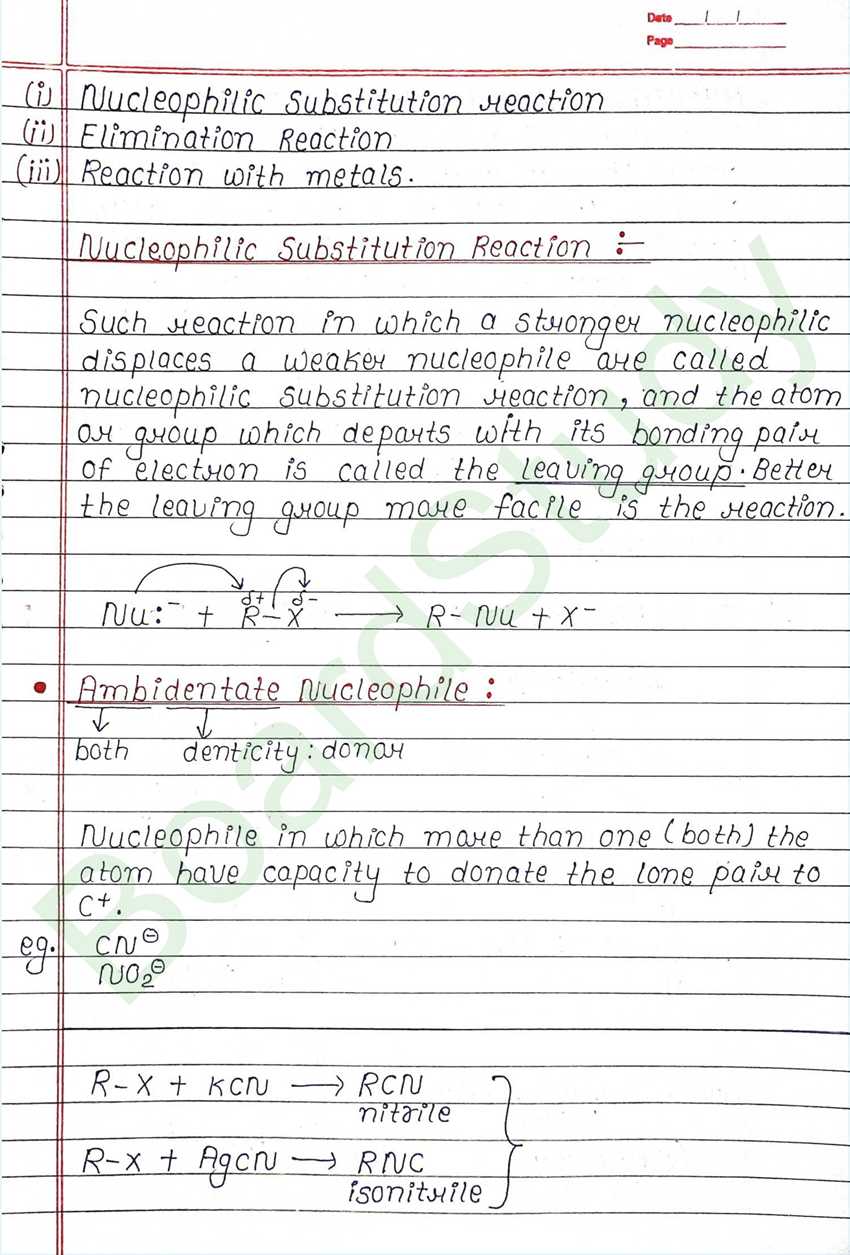 Date / /
Page
(i) Nucleophilic Substitution reaction
(ii) Elimination Reaction
(iii) Reaction with metals.
Nucleophilic Substitution Reaction :-
Such reaction in which a stronger nucleophilic
displaces a weaker nucleophile are called
nucleophilic substitution reaction, and the atom
or group which departs with its bonding pair
of electron is called the leaving group. Better
the leaving group more facile is the reaction.
Nu:⁻ + R^δ+ – X^δ- ⟶ R – Nu + X⁻
• Ambidentate Nucleophile :
both denticity : donar
Nucleophile in which more than one (both) the
atom have capacity to donate the lone pair to
C⁺.
eg. CN⊖
NO₂⊖
R–X + KCN ⟶ RCN
nitrile
R–X + AgCN ⟶ RNC
isonitrile
BoardStudy